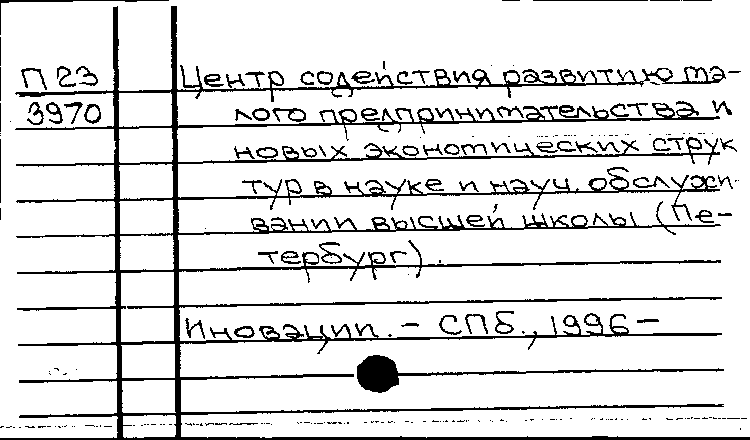 П 23 Центр содействия развитию ма-
3970 лого предпринимательства и
новых экономических струк
тур в науке и науч. обслужи
вании высшей школы (Пе-
тербург).
Иновации. – СПб., 1996 –